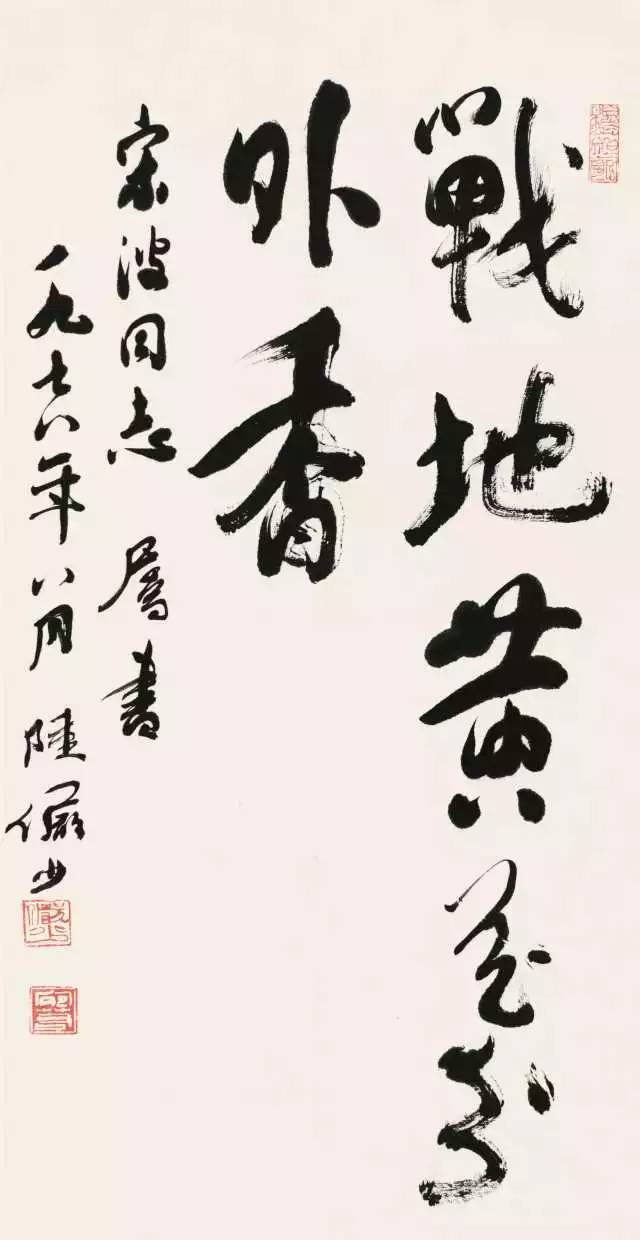 戰地黃花分
外香
宗波同志 屬書
一九七八年八月 陸儼少